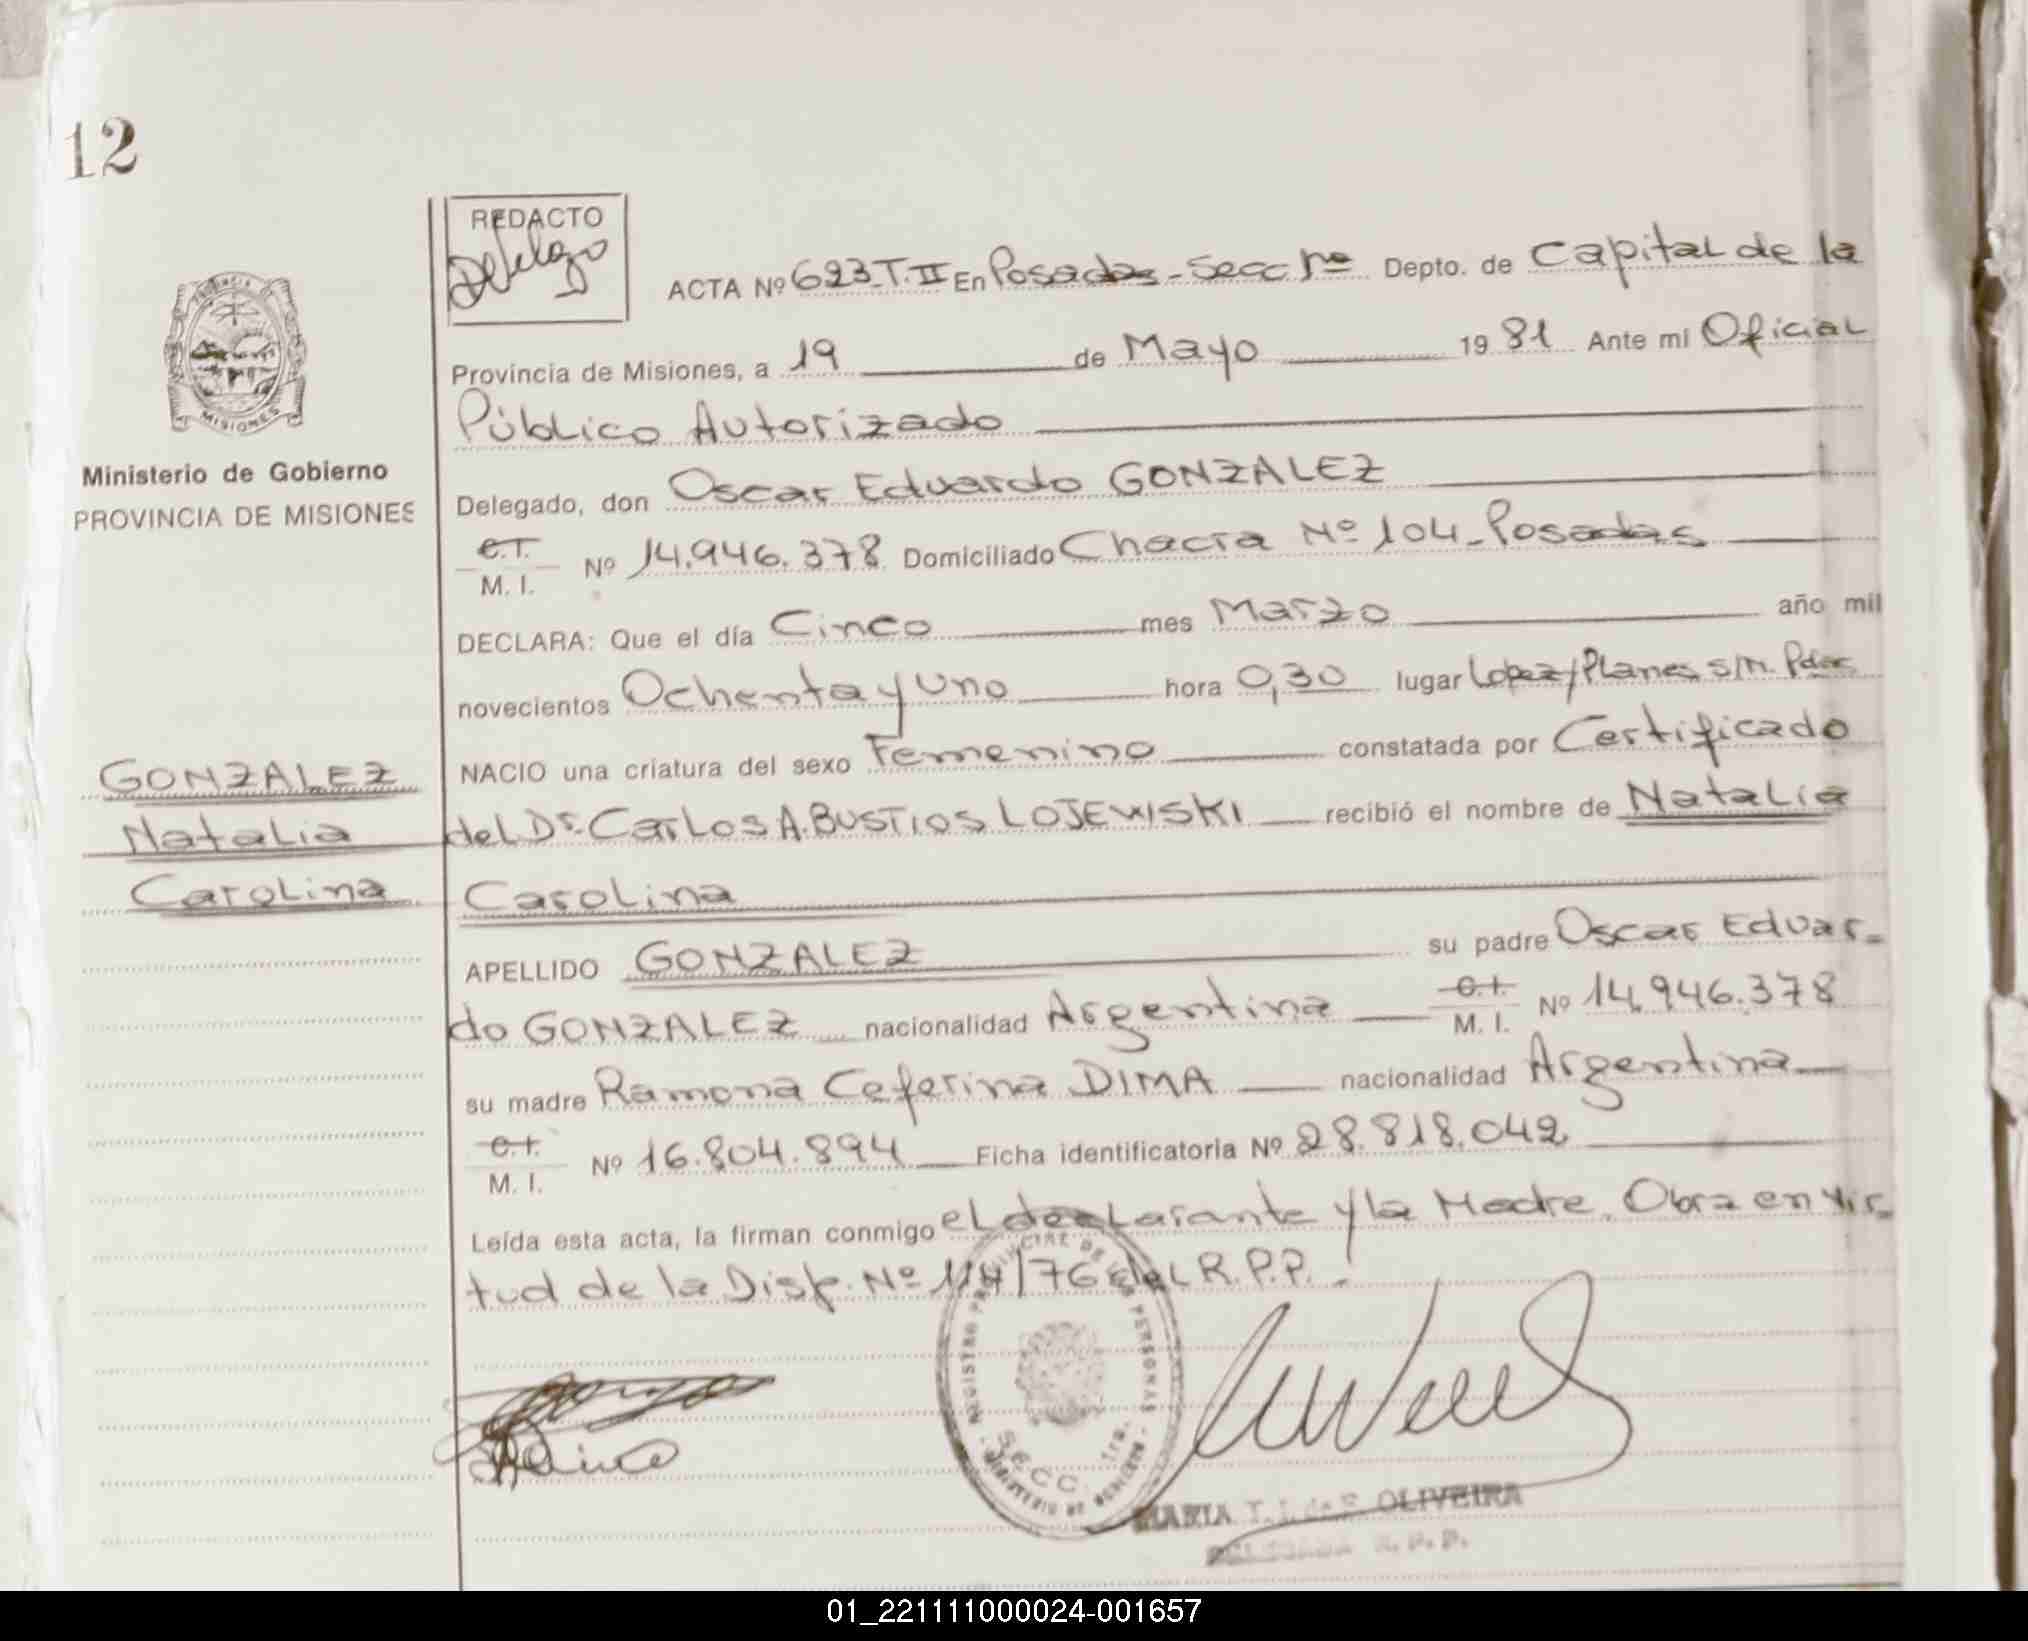 12
REDACTO
Delegado
ACTA Nº 623-T.II En Posadas - Secc 1ra Depto. de Capital de la
Provincia de Misiones, a 19 de Mayo 1981 Ante mi Oficial
Público Autorizado
Ministerio de Gobierno
PROVINCIA DE MISIONES
MISIONES
Delegado, don Oscar Eduardo GONZALEZ
C.I.
M. I. Nº 14.946.378 Domiciliado Chacra Nº 104 - Posadas
DECLARA: Que el día Cinco mes Marzo año mil
novecientos Ochenta y Uno hora 0,30 lugar Lopez y Planes s/n. Pdas.
NACIO una criatura del sexo Femenino constatada por Certificado
GONZALEZ
Natalia
Carolina
del Dr. Carlos A. BUSTIOS LOJEWISKI recibió el nombre de Natalia
Carolina
APELLIDO GONZALEZ su padre Oscar Eduar-
do GONZALEZ nacionalidad Argentina C.I.
M. I. Nº 14.946.378
su madre Ramona Ceferina DIMA nacionalidad Argentina
C.I.
M. I. Nº 16.804.894 Ficha identificatoria Nº 28.818.042
Leída esta acta, la firman conmigo el declarante y la Madre. Obra en vir-
tud de la Disp. Nº 114/76 del R.P.P.
REGISTRO PROVINCIAL DE LAS PERSONAS
SECC. 1ra.
MINISTERIO DE GOBIERNO
MARIA T. OLIVEIRA
DELEGADA R. P. P.
01_221111000024-001657